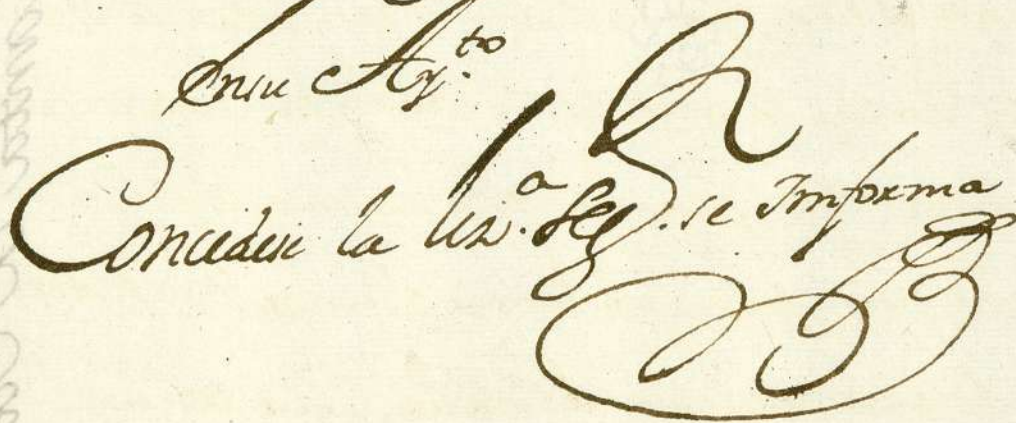 En su Ay.to
Concedese la liz.a seg.n se Informa